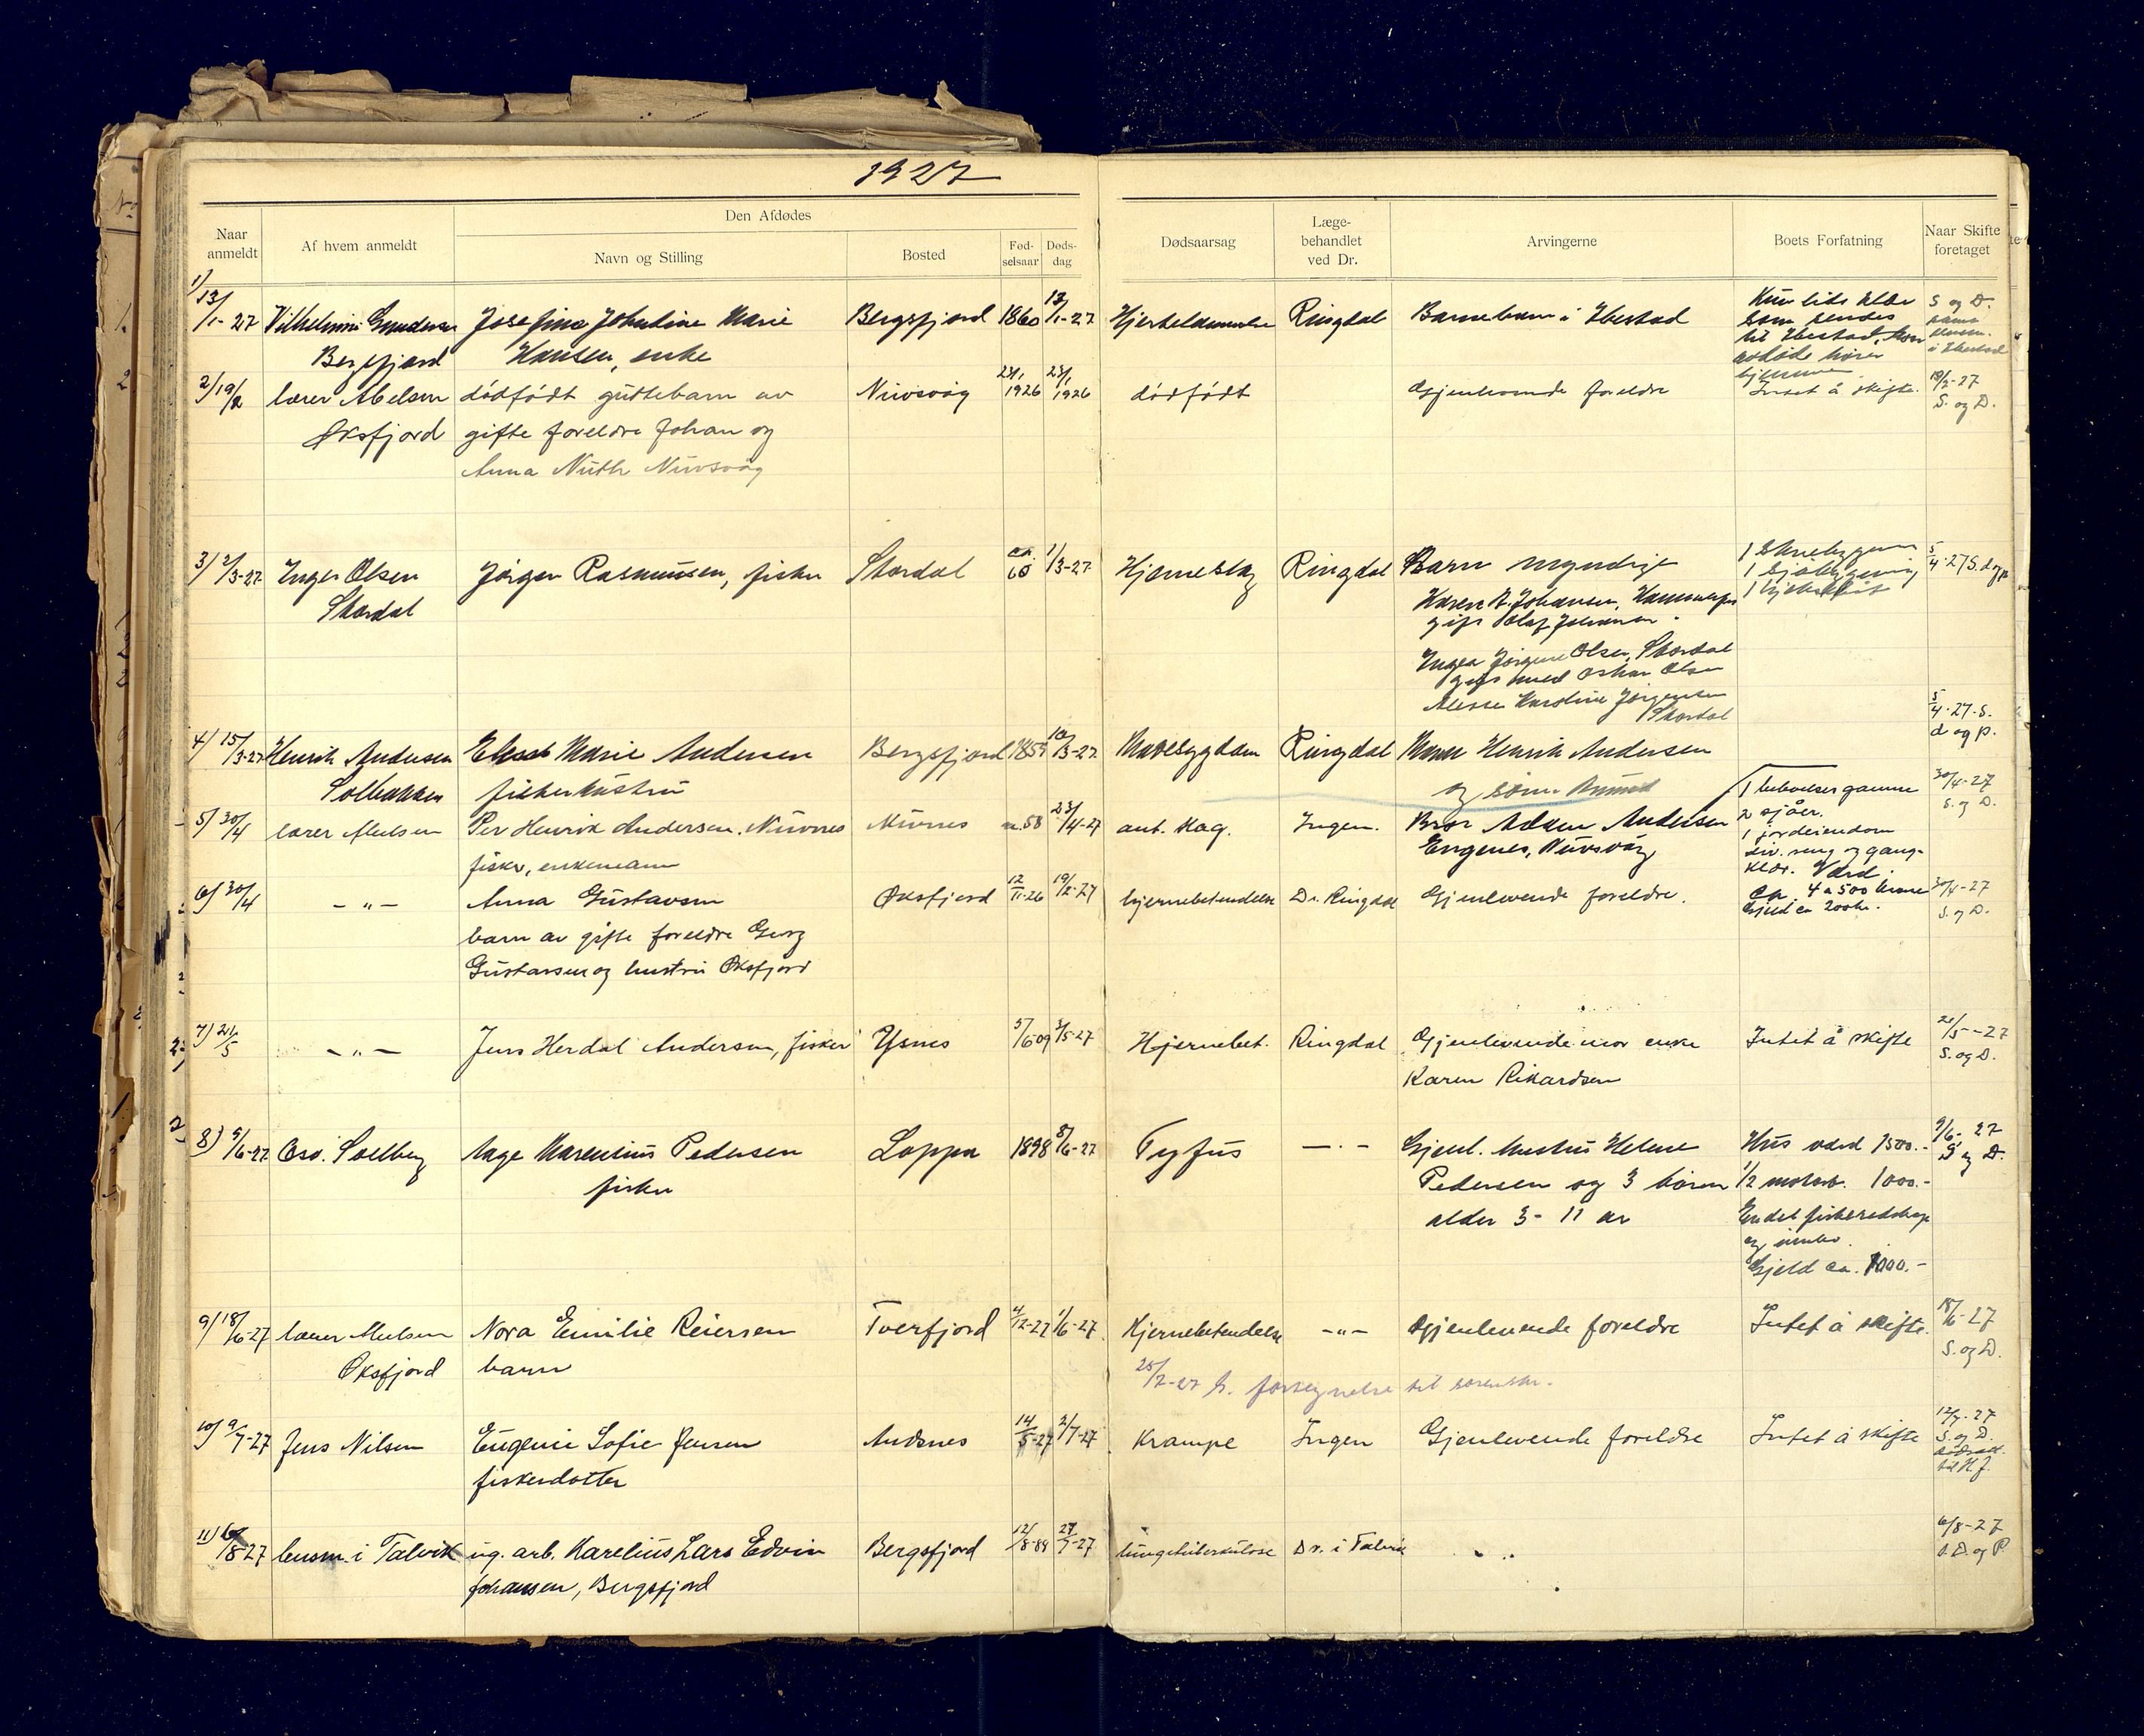 1927
Naar anmeldt
Af hvem anmeldt
Den Afdødes
Navn og Stilling
Bosted
Fød-
selsaar
Døds-
dag
Dødsaarsag
Læge-
behandlet
ved Dr.
Arvingerne
Boets Forfatning
Naar Skifte
foretaget
1/ 13/1-27 Vilhelmine Josefine Johndine Marie Bergsfjord 1860 13/1-27 Hjertelammelse Ringdal Barnebarn i Ibestad Kun litt klær S og D.
Bergsfjord Hansen, enke som sendes
til Ibestad, hvor
avdøde hører i Ibestad
hjemme
2/ 19/2 lærer Abelsen dødfødt guttebarn av Nuvsvåg 23/1 1926 23/1 1926 dødfødt Gjenlevende foreldre Intet å skifte. 19/2-27
Øksfjord gifte foreldre Johan og S. og D.
Anna Nuth Nuvsvåg
3/ 2/3-27 Inger Olsen Jørgen Rasmussen, fisker Skardal ca. 60 1/3-27 Hjerneslag Ringdal Barn myndige 1 5/4-27 S. d og p
Skardal 1 sjøbygning
Karen A. Johansen, Hammerfest
gift Olaf Johansen.
Inga Jørgine Olsen, Skardal
gift med Oskar Olsen
Karoline Jørgensen
Skardal
4/ 15/3-27 Henrik Andersen Marie Andersen Bergsfjord 10/3-27 Mavesygdom Ringdal Mann Henrik Andersen 5/4-27-S.
d og p.
Solbakken fiskerhustru og sønn
5/ 30/4 lærer Per Henrik Andersen. Nuvnes Nuvnes 58 23/4-27 ant. slag. Ingen. Bror Andersen 1 beboelsesgamme 30/4-27
fisker, enkemann Engenes, Nuvsvåg 2 sjåer. S. og D.
1 jordeiendom
div. seng og gang-
klær. Værd
ca. 4 a 500 krone
Gjeld ca 200 kr.
6/ 30/4 — " — Anna Gustavsen Øksfjord 12/11-26 19/2-27 hjernebetendelse Dr. Ringdal Gjenlevende foreldre. 30/4-27
barn av gifte foreldre Georg S. og D.
Gustavsen og hustru Øksfjord
7/ 21/5 — " — Jens Herdal Andersen, fisker Ysnes 5/6-09 Hjernebet. Ringdal Gjenlevende mor enke Intet å skifte 21/5-27
Karen Rikardsen S. og D.
8) 9/6-27 Osv. Solberg Aage Marenius Pedersen Loppa 1898 8/6-27 Tyfus — . — Gjenl. hustru Helene Hus værd 1500.- 9/6-27
fisker Pedersen og 3 børn 1/2 motorb. 1000.- S og D.
alder 3 - 11 år Endel fiskeredskap
og innbo.
Gjeld ca. 1000.-
9/ 18/6-27 lærer Nora Emilie Reiersen Tverfjord 4/12-27 1/6-27 Hjernebetendelse — " — Gjenlevende foreldre Intet å skifte. 18/6-27
Øksfjord barn S. og D.
25/7-27 til sorenskr.
10) 9/7-27 Jens Nilsen Eugenie Sofie Jensen Andsnes 14/5-27 2/7-27 Krampe Ingen Gjenlevende foreldre Intet å skifte 12/7-27
fiskerdatter S. og D.
til H. J.
11) 6/8-27 lensm. i Talvik ug. arb. Karelius Lars Edvin Bergsfjord 12/8-84 27/7-27 lungetuberkulose Dr. i Talvik 6/8-27
Johansen, Bergsfjord S. D. og P.